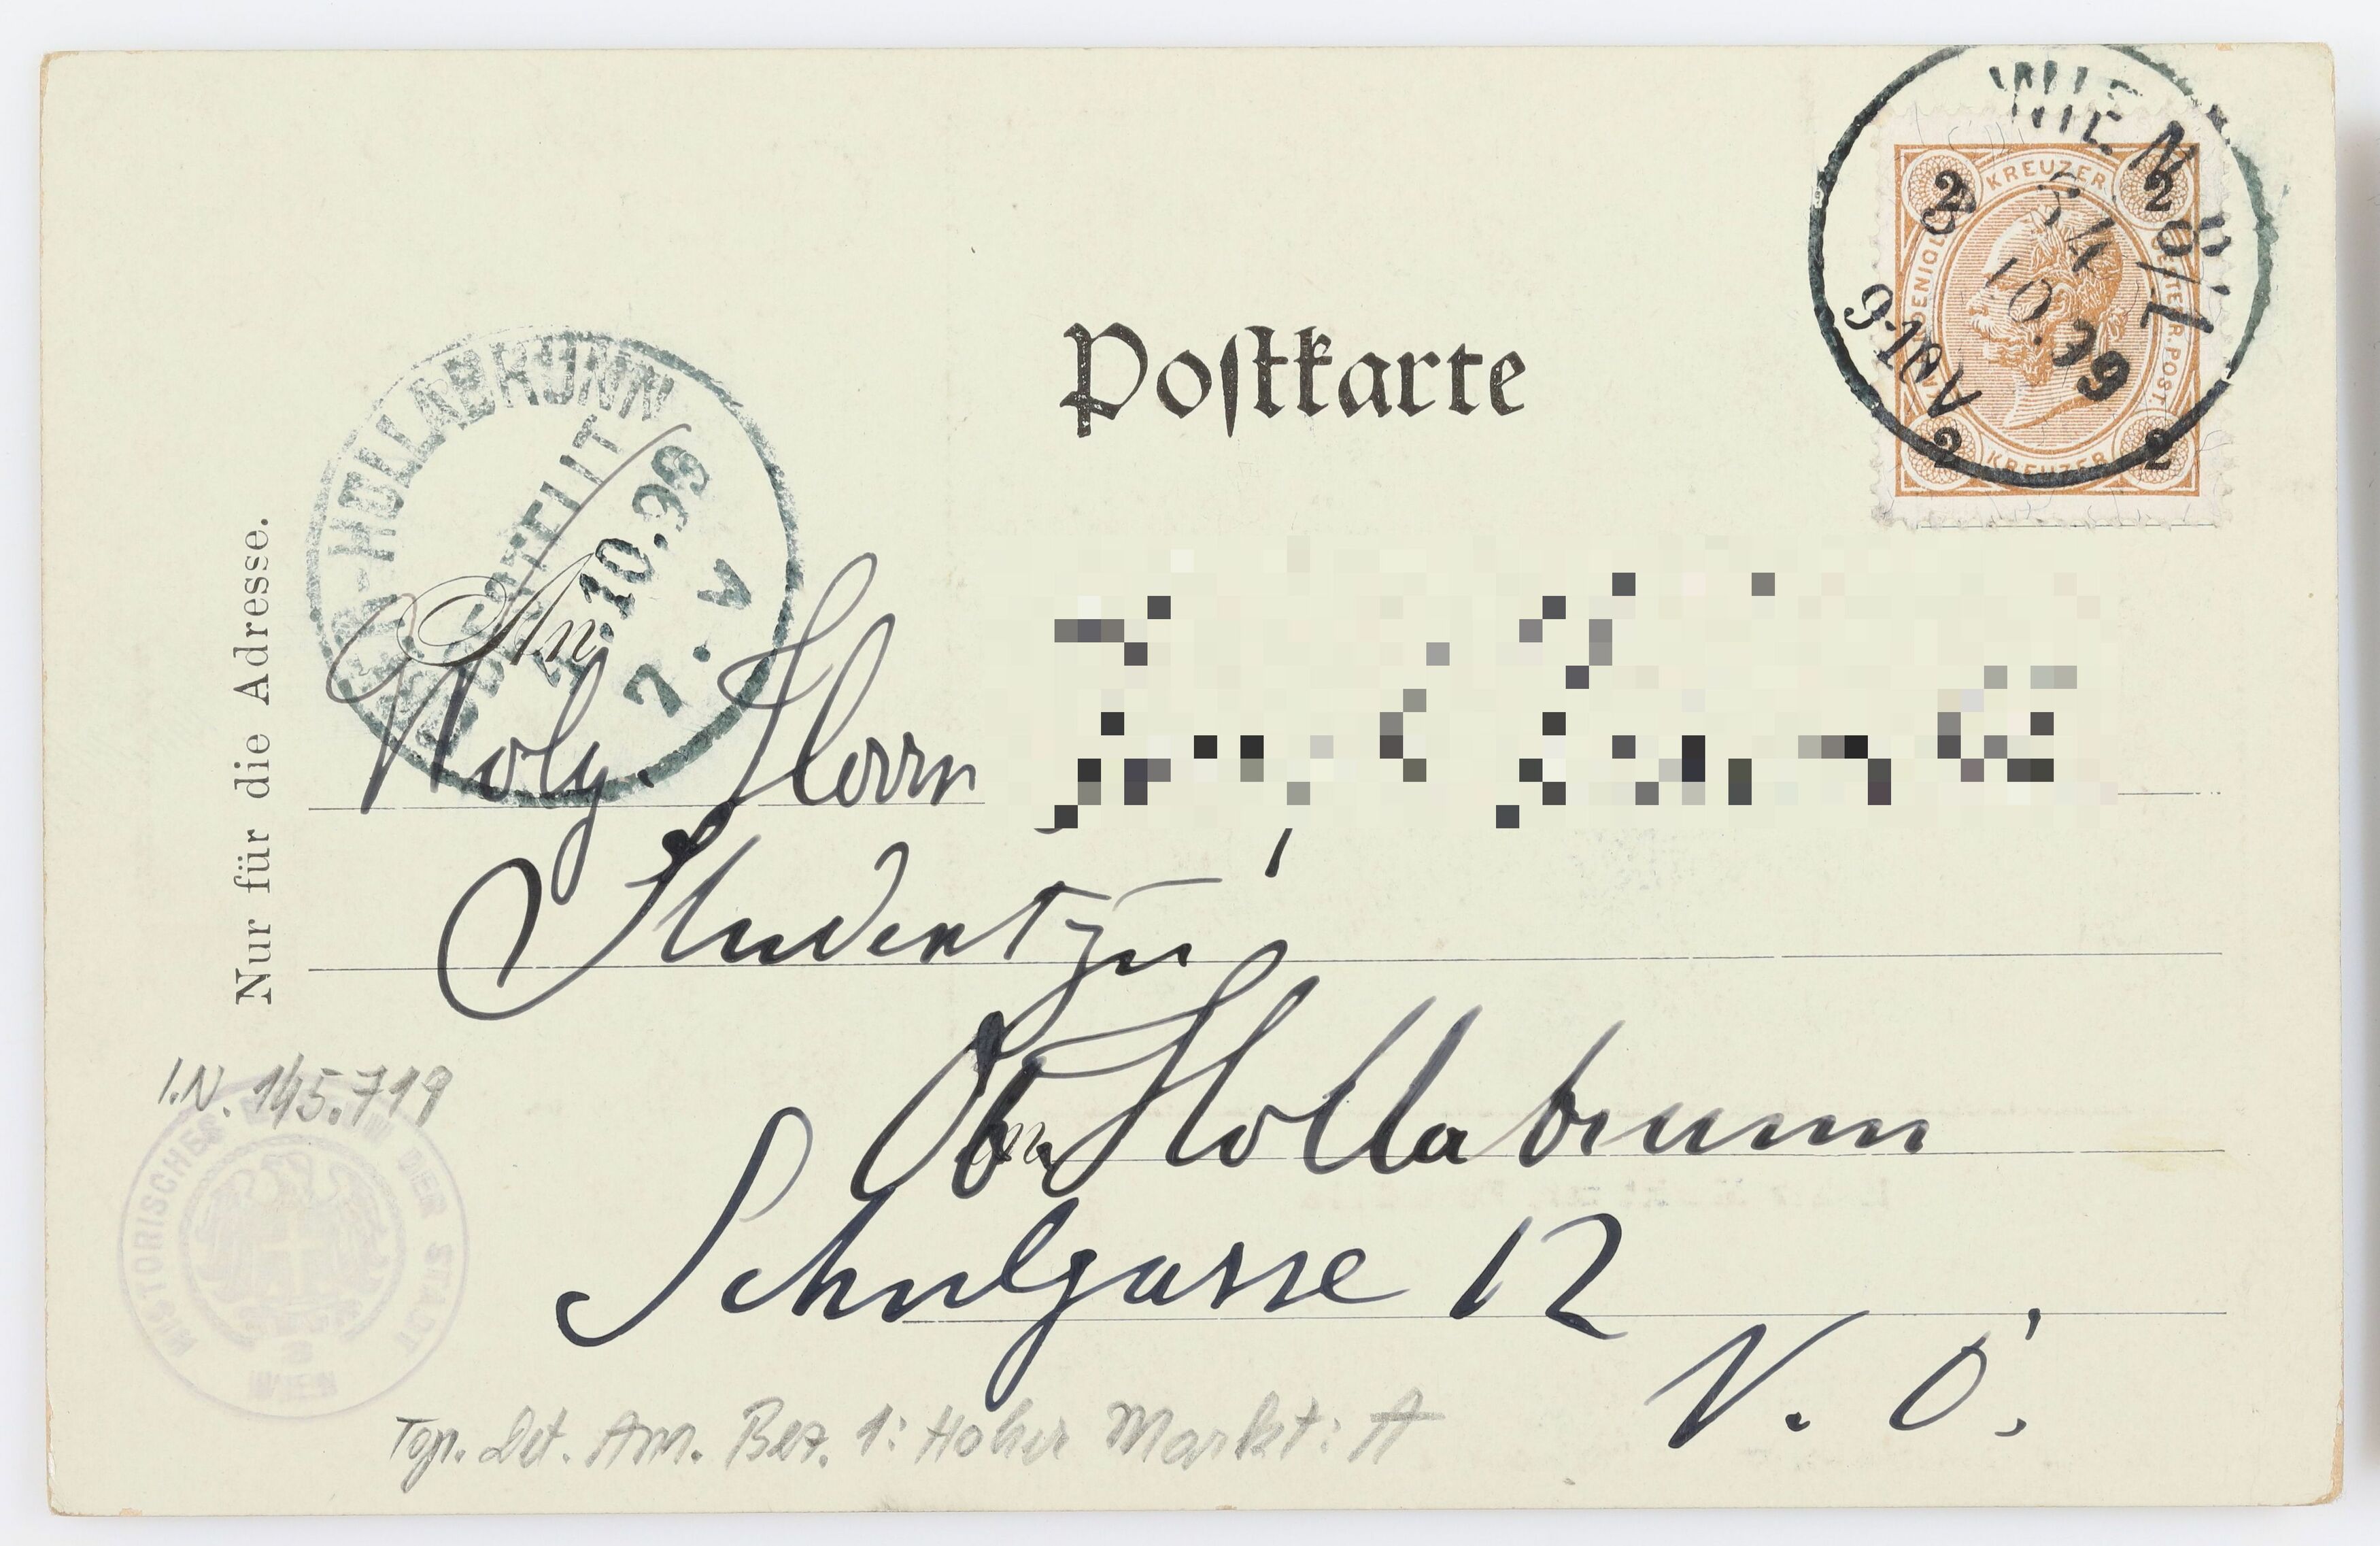 Postkarte
WIEN
8/1
3 4
10.99
9-10V.
KREUZER
2 2
OESTERR. POST
2 2
KREUZER
HOLLABRUNN
BESTELLT
4.10.99
7. V
Nur für die Adresse.
An
Wolg. Herrn
Student zu
Ob. Hollabrunn
in
Schulgasse 12
N. Ö.
I.N. 145.719
HISTORISCHES MUSEUM DER STADT
WIEN
Top. Det. Am. Bez. 1: Hoher Markt: A